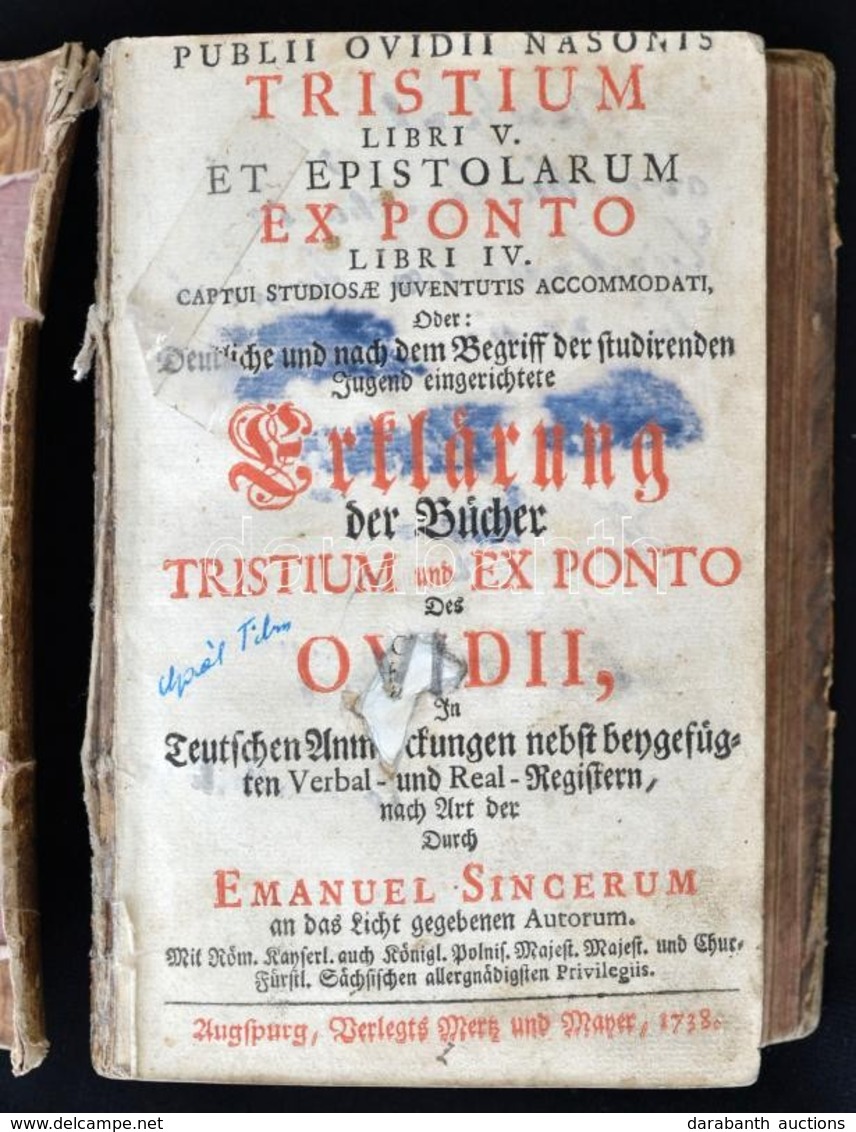 PUBLII OVIDII NASONIS
TRISTIUM
LIBRI V.
ET EPISTOLARUM
EX PONTO
LIBRI IV.
CAPTUI STUDIOSÆ JUVENTUTIS ACCOMMODATI,
Oder:
Deutliche und nach dem Begriff der studirenden
Jugend eingerichtete
Erklärung
der Bücher
TRISTIUM und EX PONTO
Des
OVIDII,
In
Teutschen Anmerckungen nebst beygefüg-
ten Verbal- und Real-Registern,
nach Art der
Durch
EMANUEL SINCERUM
an das Licht gegebenen Autorum.
Mit Röm. Kayserl. auch Königl. Polnis. Majest. Majest. und Chur-
Fürstl. Sächsischen allergnädigsten Privilegiis.
Augspurg, Verlegts Mertz und Mayer, 1738.
darabanth
darabanth auctions